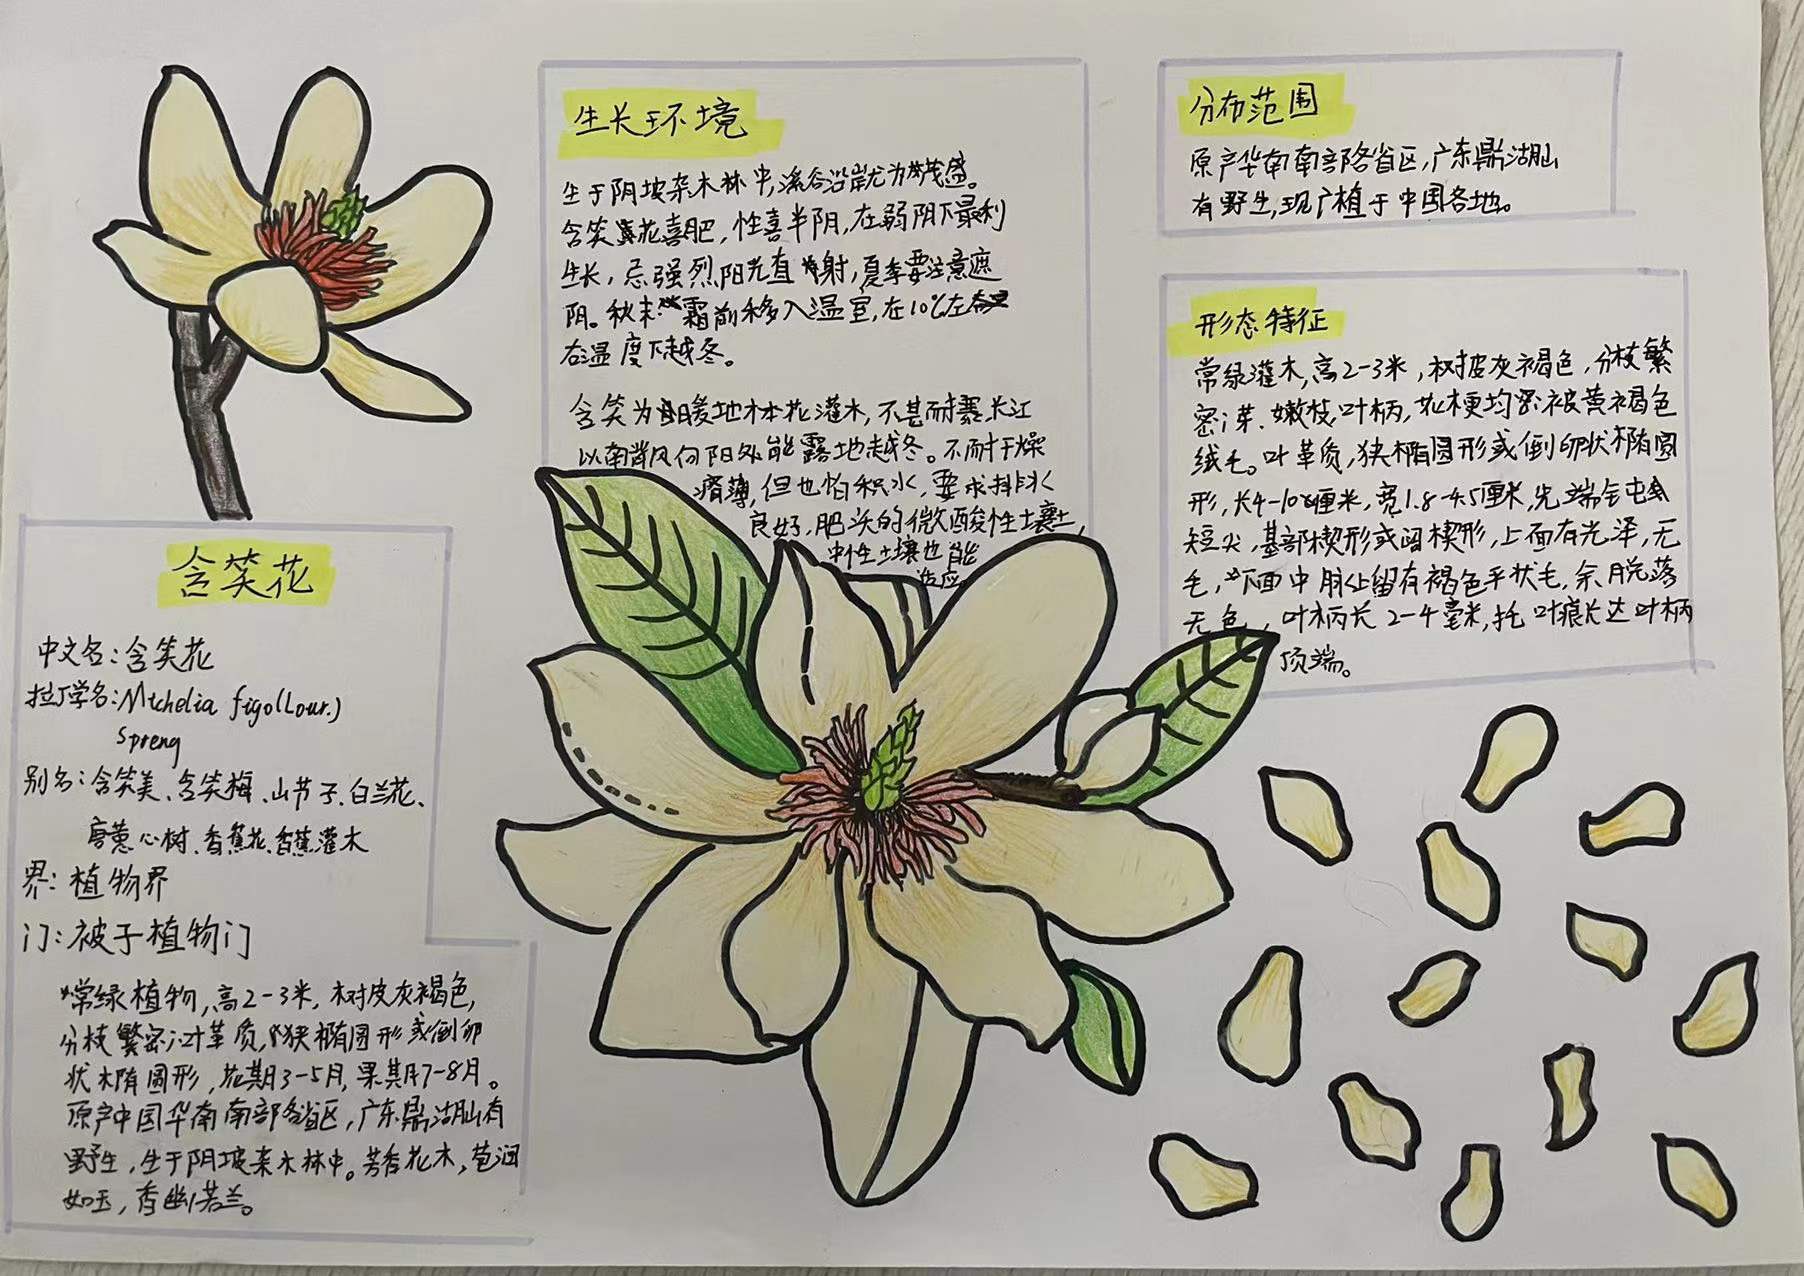 含笑花
中文名：含笑花
拉丁学名：Mtchelia figo(Lour.)
Spreng
别名：含笑美、含笑梅、山节子、白兰花、
唐黄心树、香蕉花、香蕉灌木
界：植物界
门：被子植物门
常绿植物，高2-3米，树皮灰褐色，
分枝繁密；叶革质，狭椭圆形或倒卵
状椭圆形，花期3-5月，果期7-8月。
原产中国华南南部各省区，广东鼎湖山有
野生，生于阴坡杂木林中。芳香花木，苞润
如玉，香幽若兰。
生长环境
生于阴坡杂木林中，溪谷沿岸尤为茂盛。
含笑花喜肥，性喜半阴，在弱阴下最利
生长，忌强烈阳光直射，夏季要注意遮
阴。秋末霜前移入温室，在10℃左
右温度下越冬。
含笑为暖地木本花灌木，不甚耐寒，长江
以南背风向阳处能露地越冬。不耐干燥
瘠薄，但也怕积水，要求排水
良好，肥沃的微酸性壤土，
中性土壤也能
适应
分布范围
原产华南南部各省区，广东鼎湖山
有野生，现广植于中国各地。
形态特征
常绿灌木，高2-3米，树皮灰褐色，分枝繁
密；芽、嫩枝，叶柄，花梗均密被黄褐色
绒毛。叶革质，狭椭圆形或倒卵状椭圆
形，长4-10厘米，宽1.8-4.5厘米，先端钝
短尖，基部楔形或阔楔形，上面有光泽，无
毛，下面中脉上留有褐色平伏毛，余脱落
无色，叶柄长2-4毫米，托叶痕长达叶柄
顶端。